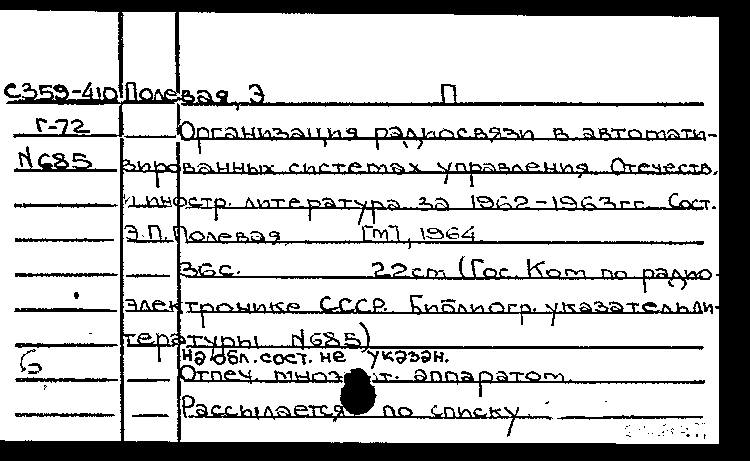 С359-410 Полевая, Э П
Г-72 Организация радиосвязи в автомати-
N685 зированных системах управления. Отечеств.
и иностр. литература за 1962-1963гг. Сост.
Э.П. Полевая [М], 1964
36с. 22см (Гос. Ком по радио-
электронике СССР. Библиогр. указатель ли-
тературы N685)
на обл. сост. не указан.
Б Отпеч. множит. аппаратом
Рассылается по списку